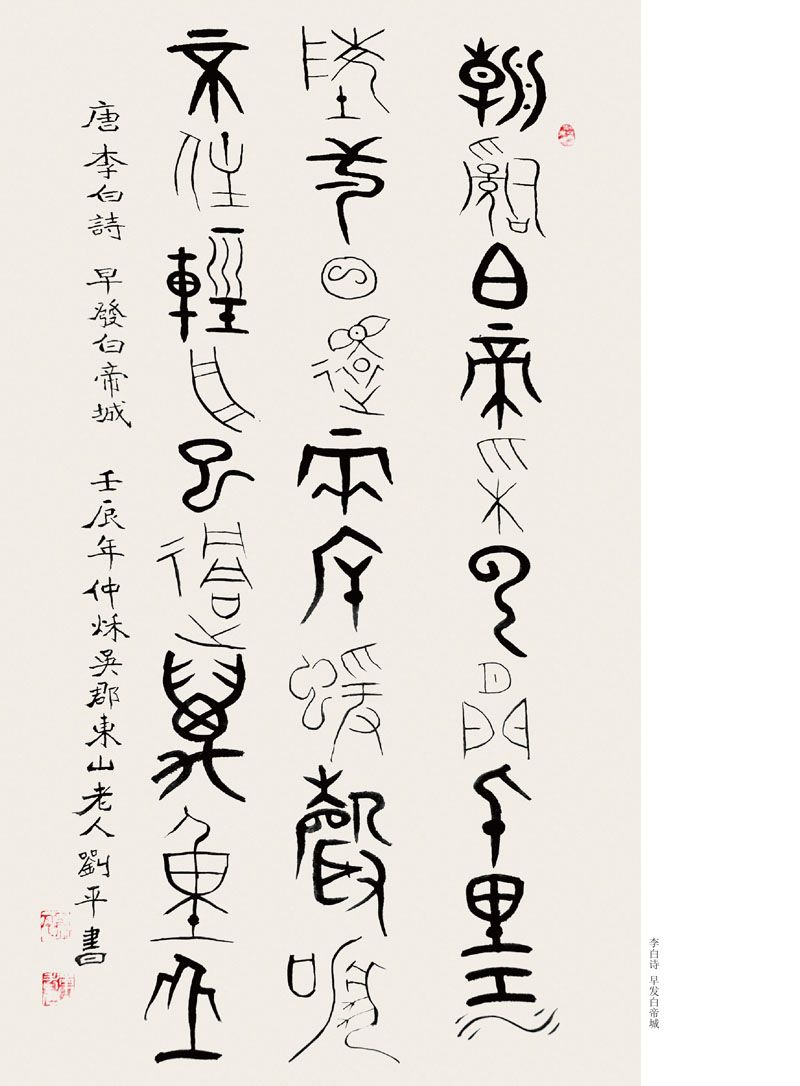 朝辭白帝采云間千里江
陵一日還兩岸蝯聲啼
不住輕舟已過萬重山
唐李白詩 早發白帝城 壬辰年仲秌吳郡東山老人劉平書
李白诗 早发白帝城